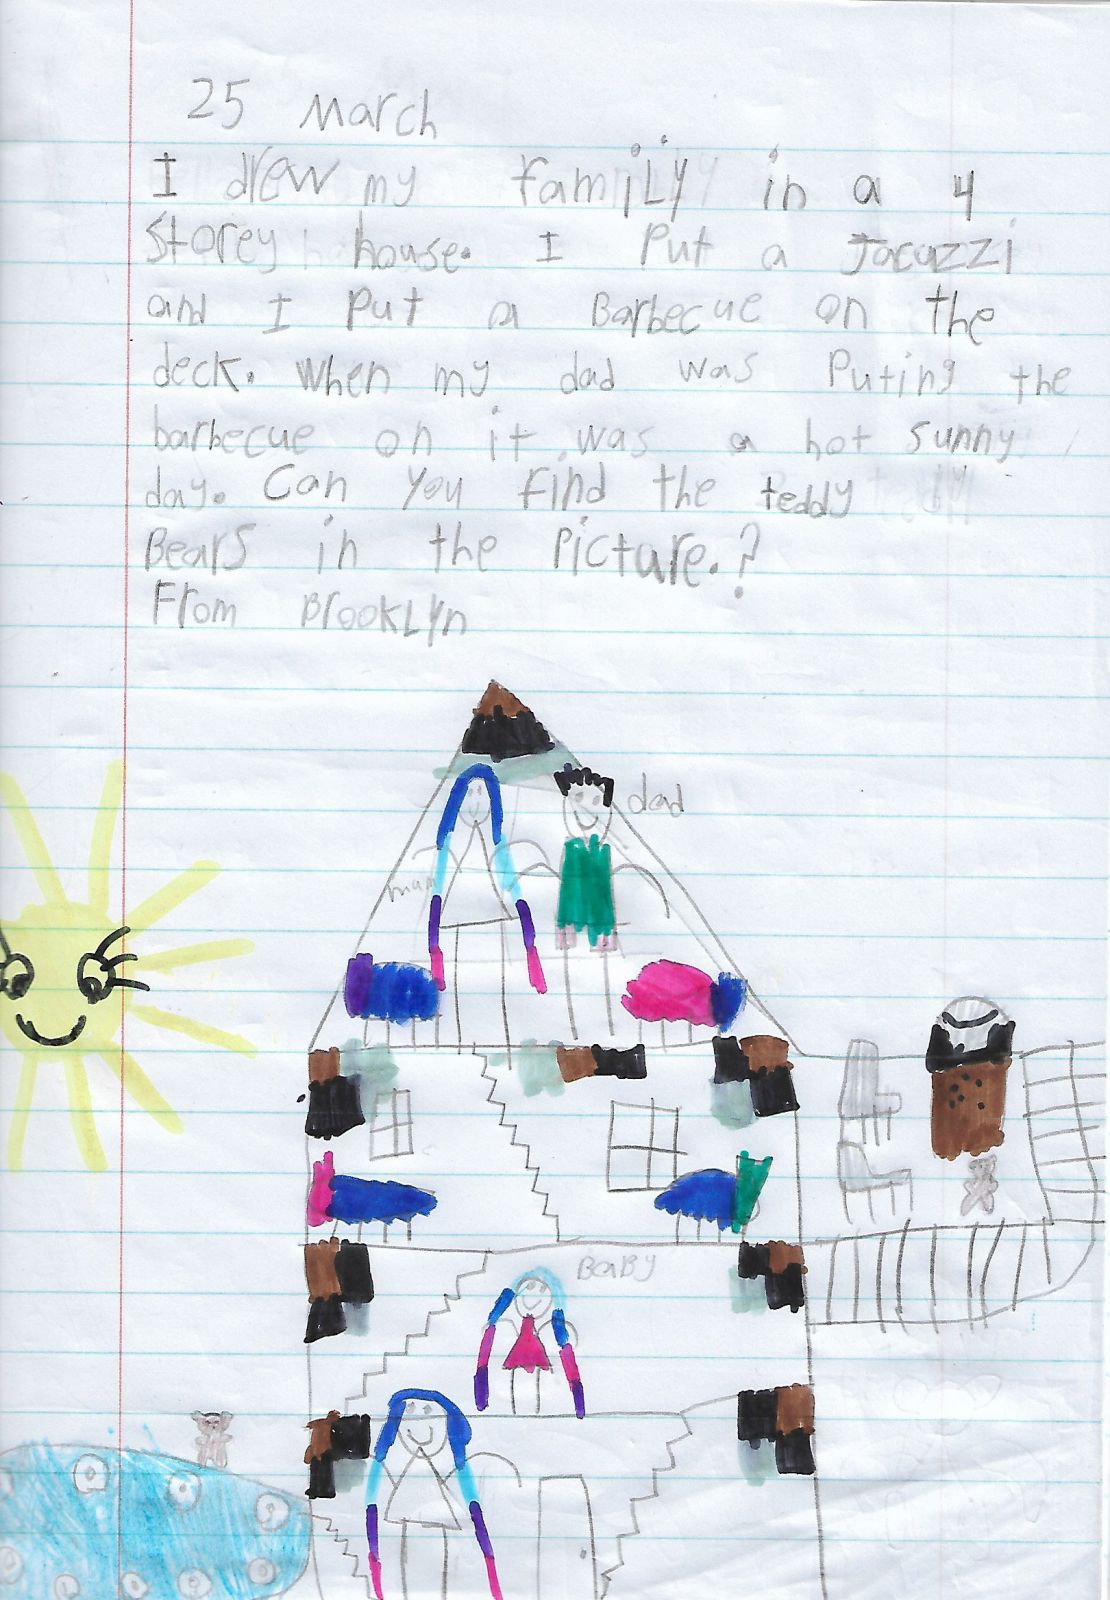 25 March
I drew my family in a 4
Storey house. I Put a Jacuzzi
and I Put a Barbecue on the
deck. When my dad was Puting the
barbecue on it was a hot sunny
day. Can you find the teddy
Bears in the Picture.?
From Brooklyn
dad
mum
BaBy